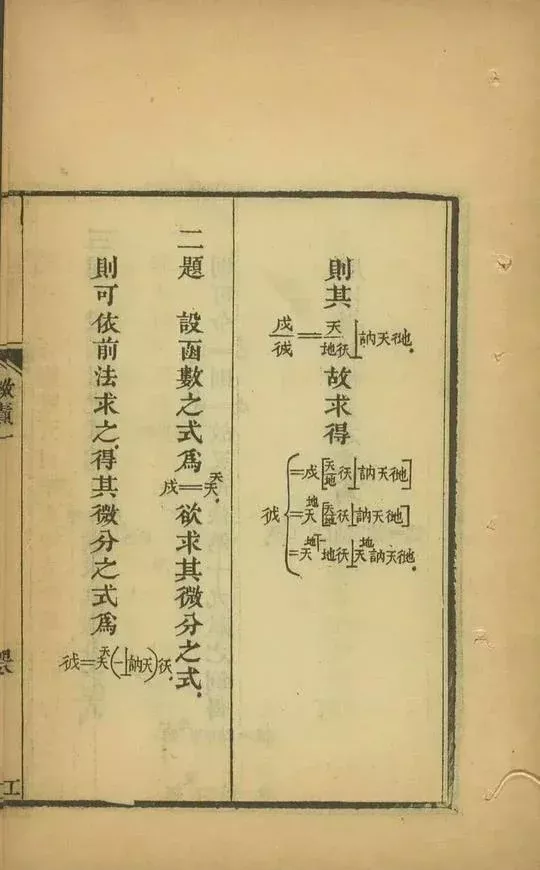 則其
戌/彳戌＝天/地彳天⊥訥天彳地.
故求得
彳戌
＝戌[天/地彳天⊥訥天彳地]
＝天^地[天/地彳天⊥訥天彳地]
＝天^(地丅一)地彳天⊥天^地訥天彳地.
二題　設函數之式為戌＝天^天,欲求其微分之式.
則可依前法求之,得其微分之式為彳戌＝天^天(一⊥訥天)彳天.